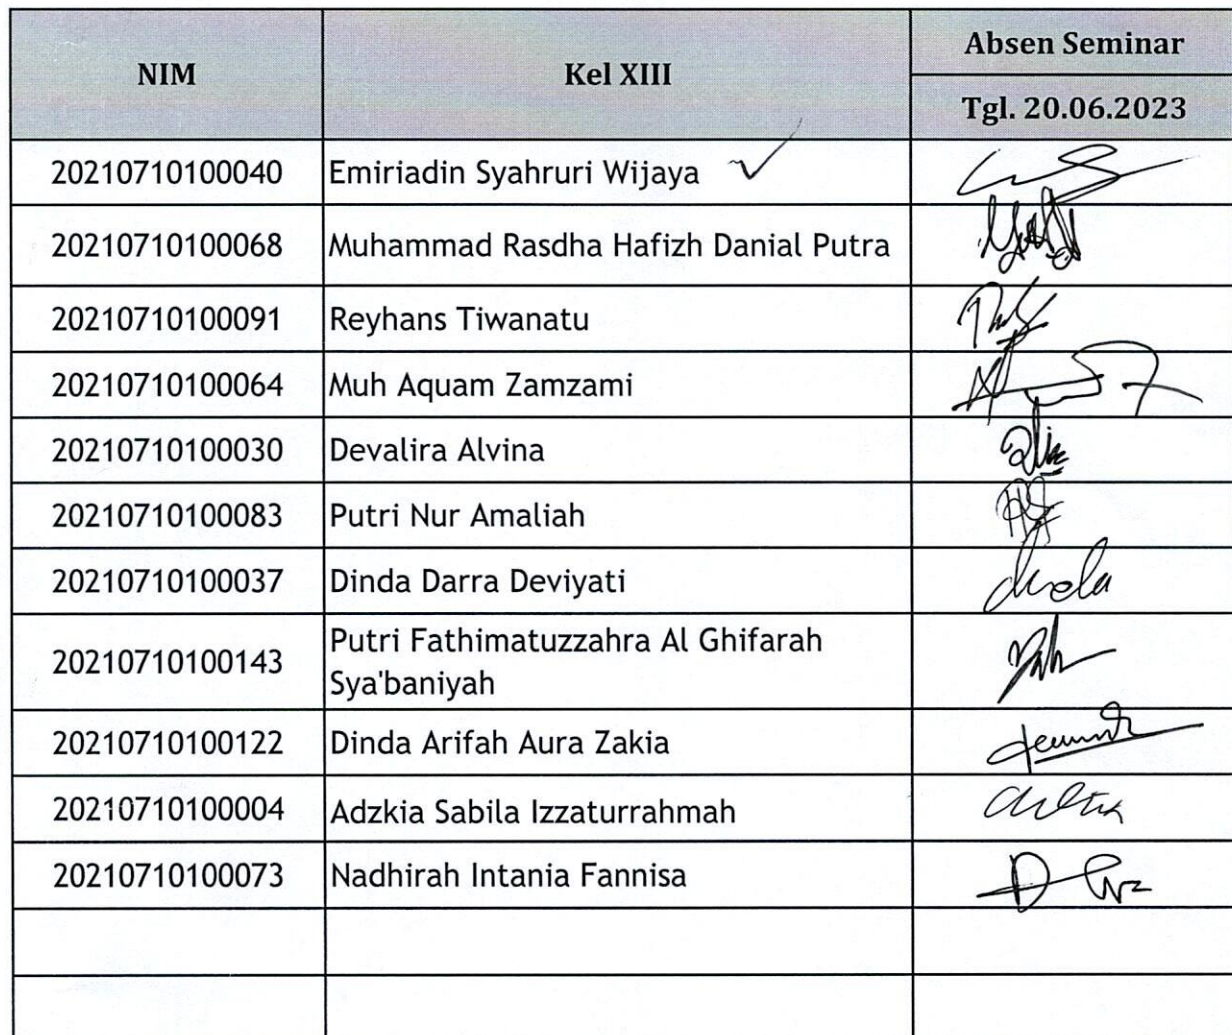 NIM Kel XIII Absen Seminar
Tgl. 20.06.2023
20210710100040 Emiriadin Syahruri Wijaya
20210710100068 Muhammad Rasdha Hafizh Danial Putra
20210710100091 Reyhans Tiwanatu
20210710100064 Muh Aquam Zamzami
20210710100030 Devalira Alvina
20210710100083 Putri Nur Amaliah
20210710100037 Dinda Darra Deviyati
20210710100143 Putri Fathimatuzzahra Al Ghifarah
Sya'baniyah
20210710100122 Dinda Arifah Aura Zakia
20210710100004 Adzkia Sabila Izzaturrahmah
20210710100073 Nadhirah Intania Fannisa